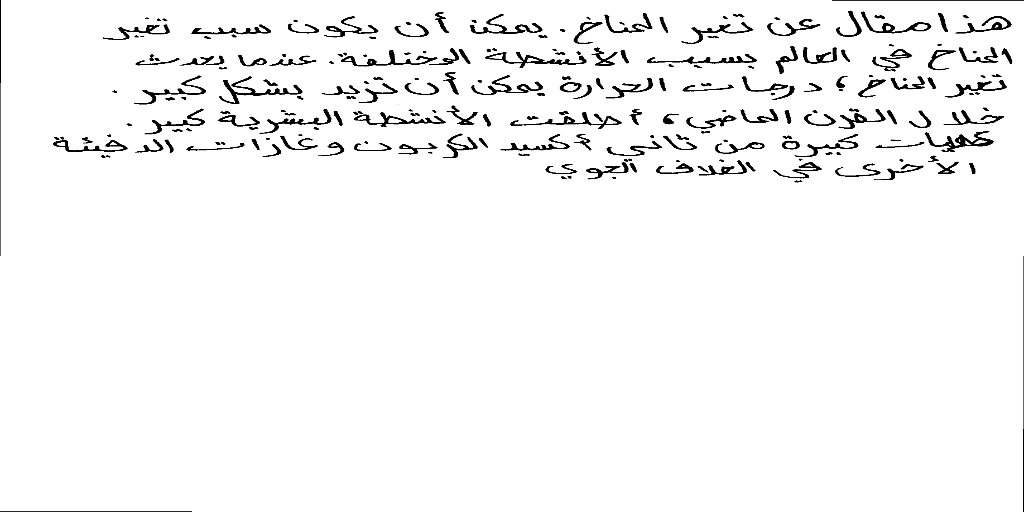 هذا مقال عن تغير المناخ. يمكن أن يكون سبب تغير
المناخ في العالم بسبب الأنشطة المختلفة. عندما يحدث
تغير المناخ، درجات الحرارة يمكن أن تزيد بشكل كبير.
خلال القرن الماضي، أطلقت الأنشطة البشرية كبير.
كميات كبيرة من ثاني أكسيد الكربون وغازات الدفيئة
الأخرى في الغلاف الجوي